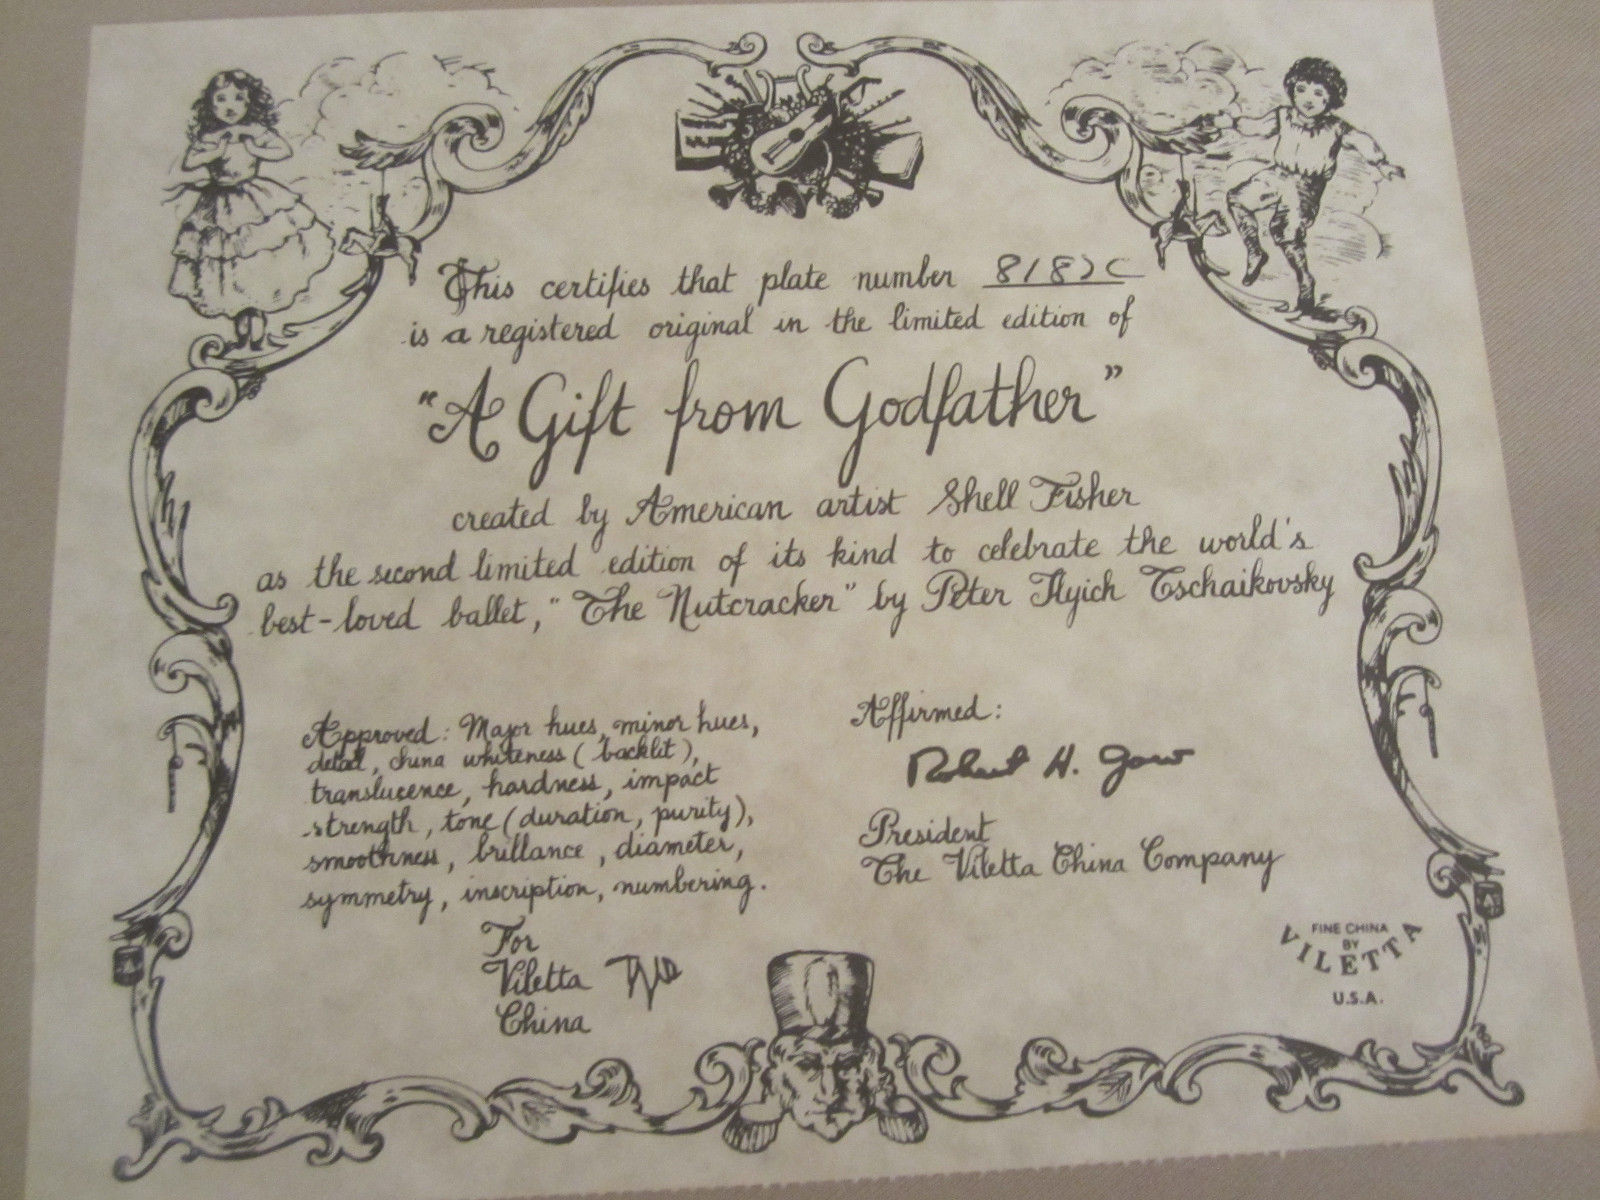 This certifies that plate number 8182C
is a registered original in the limited edition of
"A Gift from Godfather"
created by American artist Shell Fisher
as the second limited edition of its kind to celebrate the world's
best-loved ballet, "The Nutcracker" by Peter Ilyich Tschaikovsky
Approved: Major hues, minor hues,
detail, china whiteness (backlit),
translucence, hardness, impact
strength, tone (duration, purity),
smoothness, brillance, diameter,
symmetry, inscription, numbering.
For
Viletta
China
Affirmed:
Robert H. Gow
President
The Viletta China Company
FINE CHINA
BY
VILETTA
U.S.A.